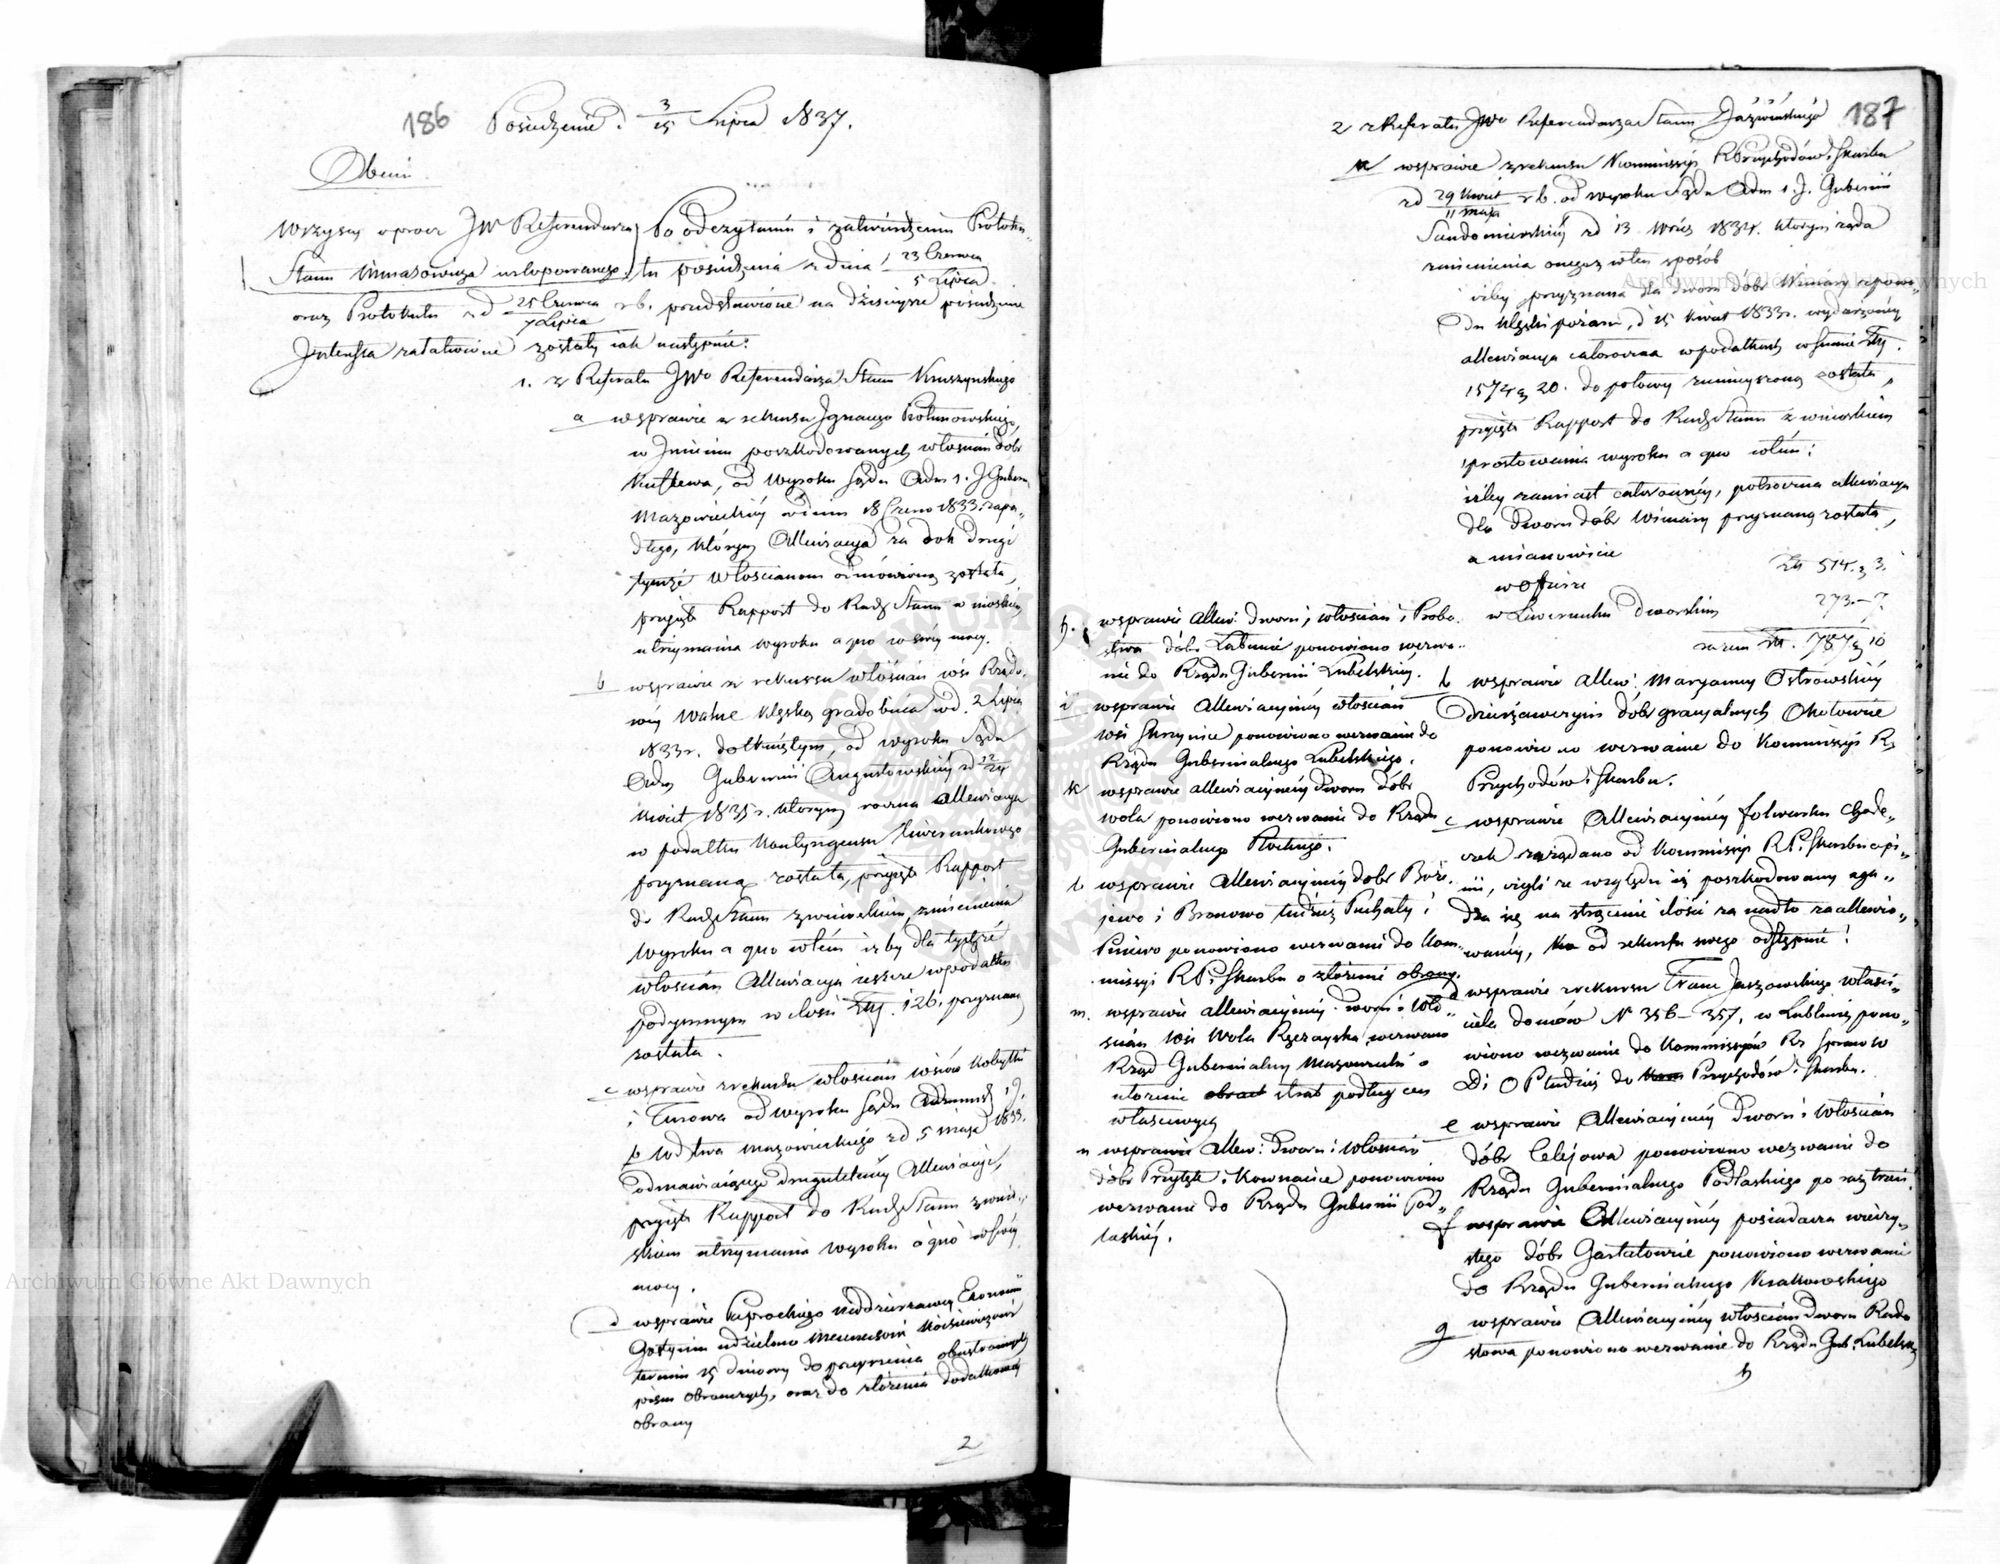 186 Posiedzenie d. 3/15 Lipca 1837.
Obecni
Wszyscy oprócz JW Referendarza
Stanu urlopowanego.
Po odczytaniu i zatwierdzeniu Protoku-
łu posiedzenia z dnia 23 Czerwca / 5 Lipca
oraz Protokułu z d 25 Czerwca / 7 Lipca r b. przedstawione na dzisiejsze posiedzenie
Interessa załatwione zostały iak następnie:
1. z Referatu JWo Referendarza Stanu Kruszyńskiego
a w sprawie z rekursu Ignacego
w Imieniu poszkodowanych włościan dóbr
od wyroku Sądu Adm 1. J Gubern
Mazowieckiéy w dniu 18 Czerw 1833. zapa-
dłego, którym Allewiacya za rok drugi
tymże Włościanom odmówioną została,
przyjęto Rapport do Rady Stanu z wnioskiem
utrzymania wyroku a quo w swéy mocy.
b w sprawie z rekursu włościan wsi Rządo-
wéy klęską gradobicia w d. 2 Lipca
1833 r. dotkniętym, od wyroku Sądu
Adm Gubernii Augustowskiéy z d 12/24
Kwiet 1835 r. którym równa Allewiacya
w podatku Kontyngensu liwerunkowego
przyznaną została, przyjęto Rapport
do Rady Stanu z wnioskiem, zmienienia
Wyroku a quo w tém iżby dla tychże
włościan Allewiacya ieszcze w podatku
podymnym w ilości Złt. 126. przyznaną
została.
c w sprawie z rekursu włościan wsiów Kobyłki
i Turowa od wyroku Sądu Administ 1 J.
b. Wdztwa Mazowieckiego z d 5 Maja 1833.
odmawiaiącego Allewiacyi,
przyjęto Rapport do Rady Stanu z wnio-
skiem utrzymania wyroku a quo w swéy
mocy.
d w sprawie Paprockiego Naddzierżawcy Ekonomii
Gostynin udzielono
termin 15 dniowy do przejrzenia obustronnych
pism obronczych, oraz do złożenia dodatkowéy
obrony
2
187
2 z Referatu JWo Referendarza Stanu Jaźwińskiego
a w sprawie z rekursu Kommissyi R Przychodów i Skarbu
z d 29 Kwiet / 11 Maja r b. od wyroku Sądu Adm 1. J. Gubernii
Sandomierskiéy z d 13. Wrześ 1834. którym żąda
zmienienia onegoż w ten sposób
iżby przyznana dla dworu dóbr Winiary z powo-
du klęski pożaru, d 15 Kwiet 1833 r. wydarzonéy
allewiacya całoroczna w podatkach w summie Złt.
1574 g 20. do połowy zmnieyszoną została,
przyjęto Rapport do Rady Stanu z wnioskiem
sprostowania wyroku a quo w tém:
iżby zamiast całorocznéy, półroczna allewiacya
dla Dworu dóbr Winiary przyznaną została,
a mianowicie
w Ofiarze Złt 514. g 3.
w Liwerunku dworskim 273. — 7
razem Złt. 787 g 10
b w sprawie Allew: Maryanny Ostrowskiéy
Dzierżawczyni dóbr Okołowie
ponowiono wezwanie do Kommissyi R.
Przychodów i Skarbu.
c w sprawie Allewiacyinéy folwarku
zażądano od Kommissyi R. P. i Skarbu opi-
nii, czyli ze względu iż poszkodowany zga-
dza się na strącenie ilości za nadto zaallewio-
wanéy, od rekursu swego odstępuie!
d w sprawie z rekursu Fran: Jaszowskiego właści-
ciela domów N 356 – 357. w Lublinie pono-
wiono wezwanie do Kommissyów Rz Spraw W
D i O P tudzież do Przychodów i Skarbu.
e w sprawie Allewiacyinéy Dworu i Włościan
dóbr Celejowa ponowiono wezwanie do
Rządu Gubernialnego Podlaskiego po raz trzeci.
f w sprawie Allewiacyinéy posiadacza wieczy-
stego dóbr ponowiono wezwanie
do Rządu Gubernialnego Krakowskiego
g w sprawie Allewiacyinéy włościan Dworu Rado
stowa ponowiono wezwanie do Rządu Gub: Lubelsk
h
h. w sprawie Allew: Dworu, włościan i Probo-
stwa dóbr Łabunie ponowiono wezwa-
nie do Rządu Gubernii Lubelskiéy.
i w sprawie Allewiacyinéy włościan
wsi Skrzynice ponowiono wezwanie do
Rządu Gubernialnego Lubelskiego.
k w sprawie allewiacyinéy Dworu dóbr
Wola ponowiono wezwanie do Rządu
Gubernialnego Płockiego.
l w sprawie Allewiacyinéy dobr Boże-
jewo i Bronowo tudzież Puchały i
Pniewo ponowiono wezwanie do Kom-
missyi R P. i Skarbu o złożenie obrony.
m. w sprawie allewiacyinéy Dworu i Wło-
ścian wsi Wola wezwano
Rząd Gubernialny Mazowiecki o
ułożenie strat podług cen
właściwych
n w sprawie Allew: Dworu i Włościan
dóbr Przyłęk i Kownacice ponowiono
wezwanie do Rządu Gubernii Pod-
laskiéy.
Archiwum Główne Akt Dawnych
Archiwum Główne Akt Dawnych